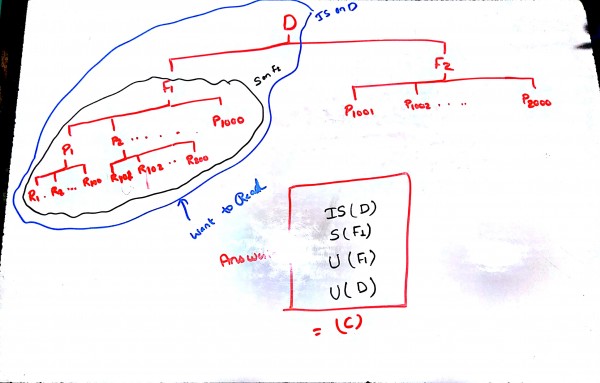 D
IS on D
F1
F2
S on F1
P1 P2 ..... P1000
P1001 P1002 .... P2000
R1 .. R2 ... R100 R101 R102 .. R200
Want to Read
IS(D)
S(F1)
U(F1)
U(D)
Answer
= (C)